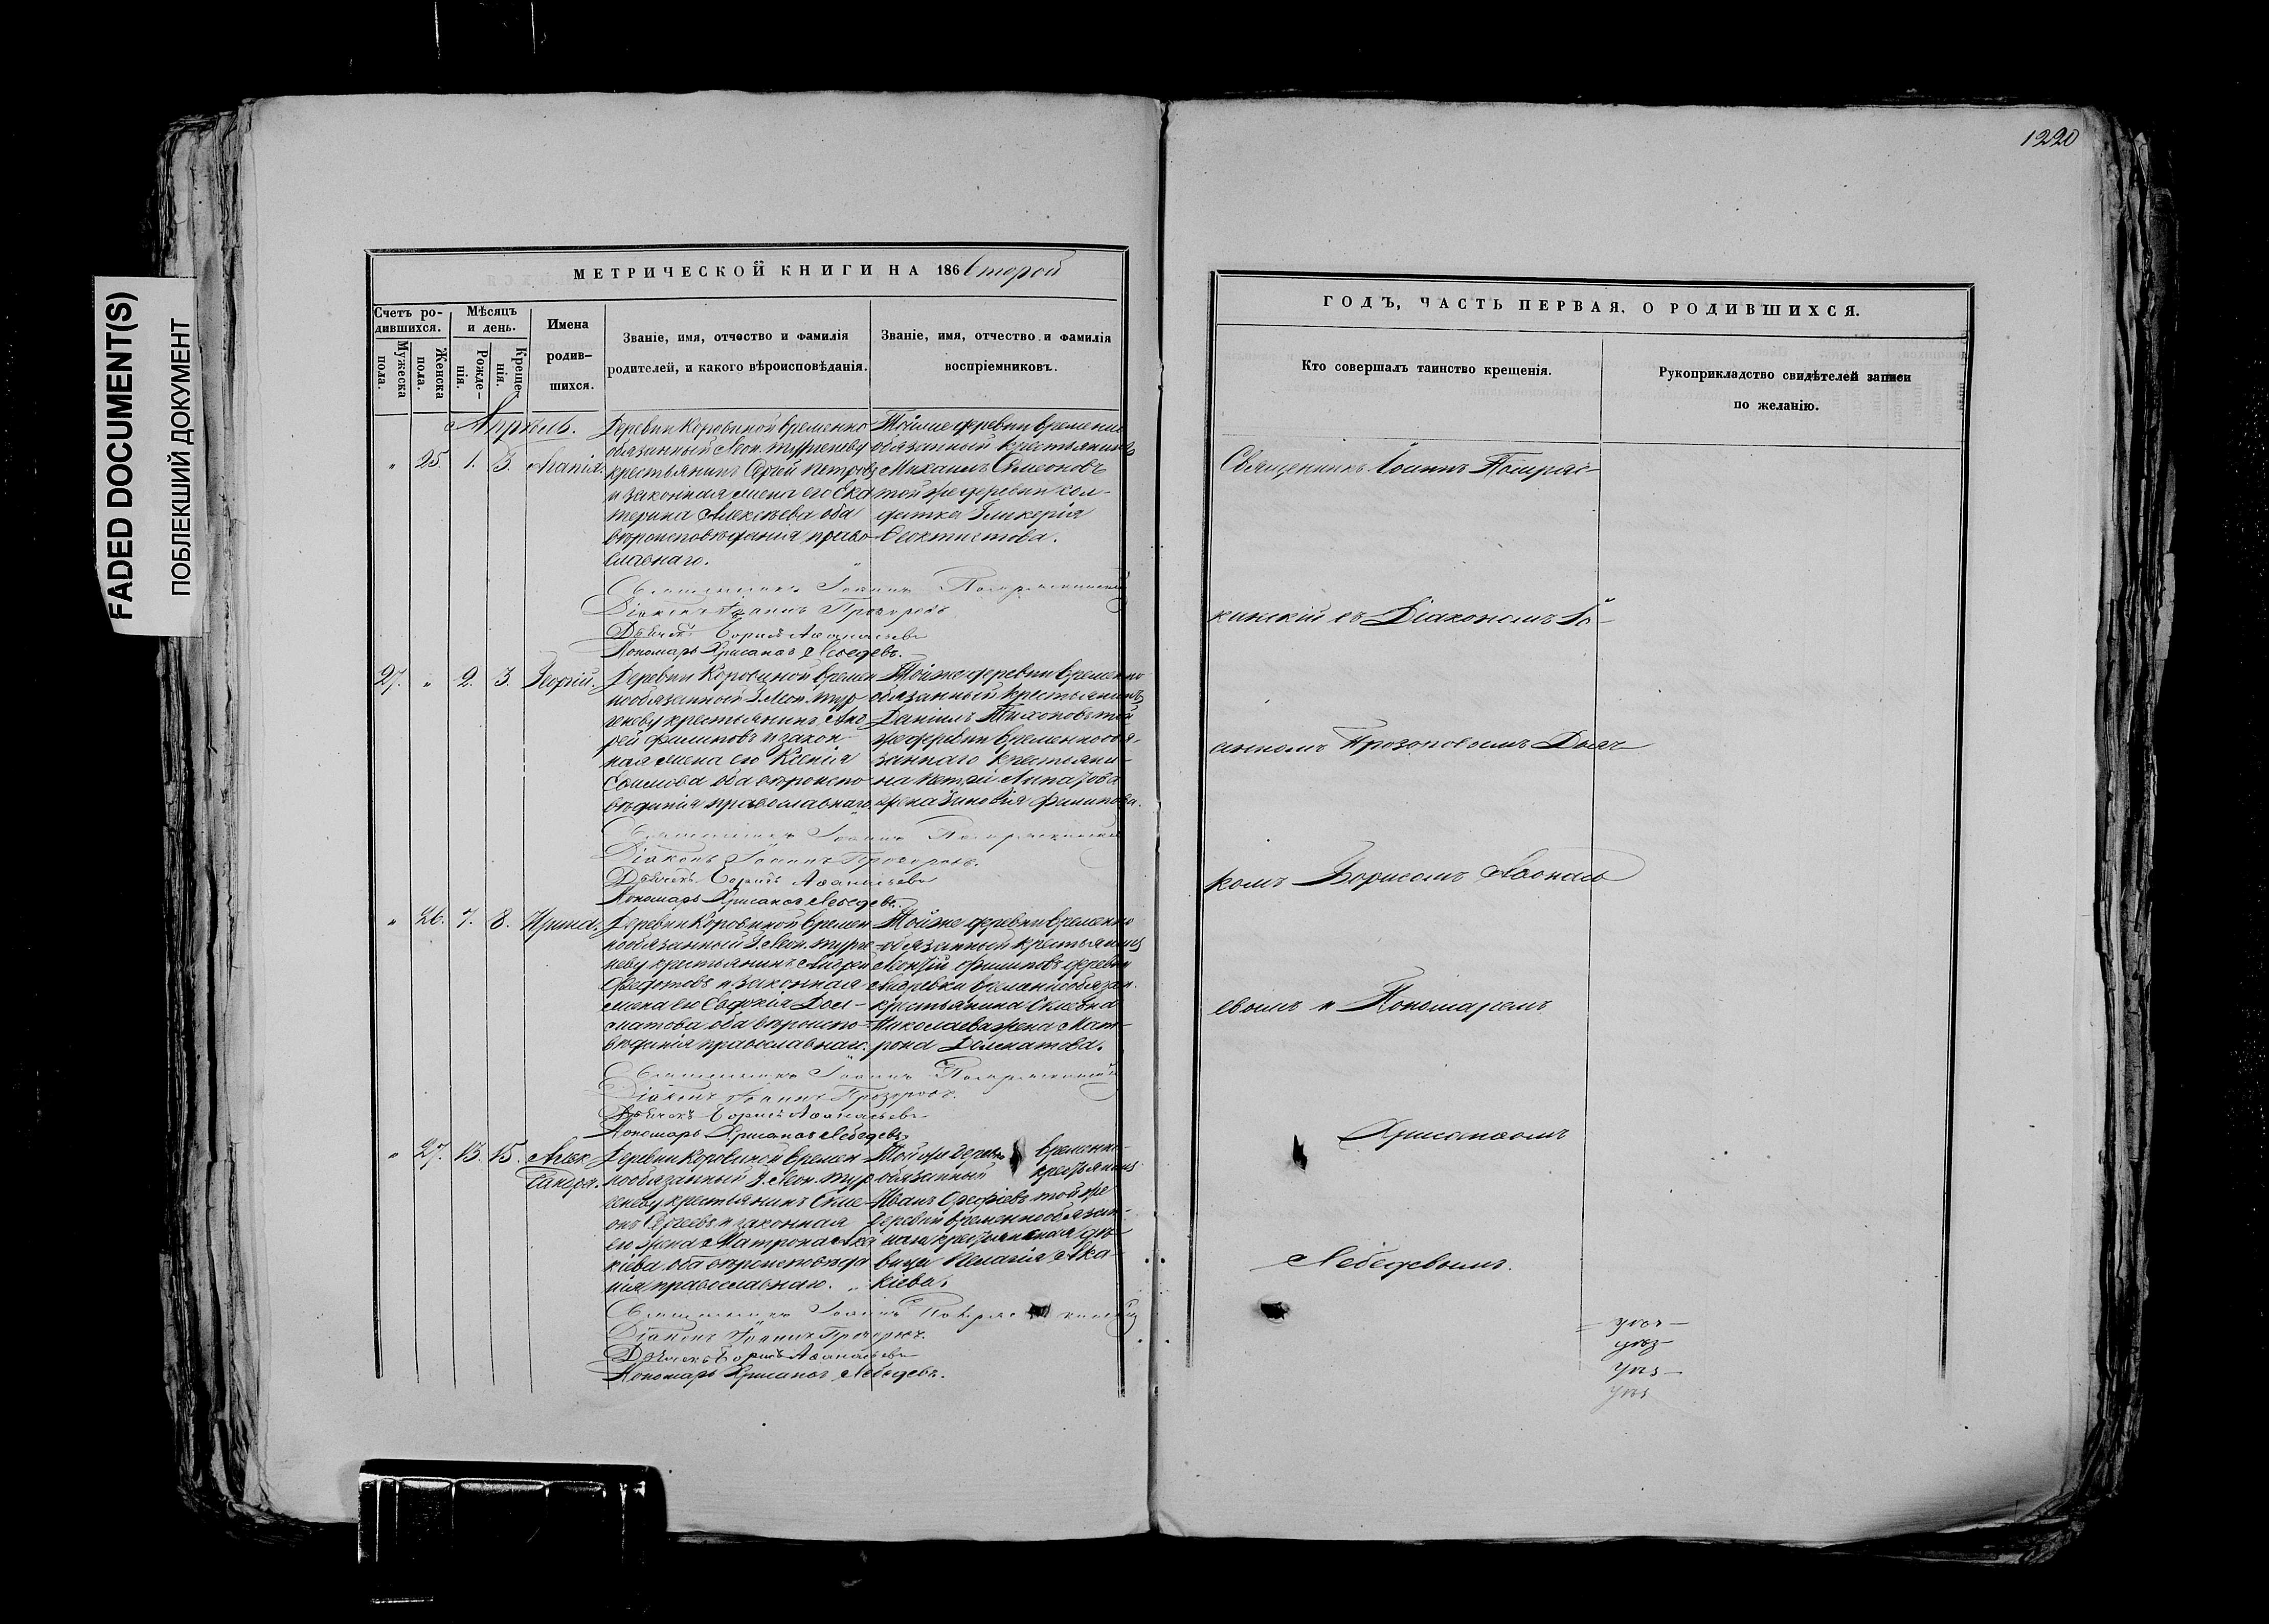 FADED DOCUMENT(S)
ПОБЛЕКШИЙ ДОКУМЕНТ
1220
МЕТРИЧЕСКОЙ КНИГИ НА 186 второй
Счетъ родившихся.
Мужеска пола.
Женска пола.
Мѣсяцъ и день.
Рожденія.
Крещенія.
Имена родившихся.
Званіе, имя, отчество и фамилія
родителей, и какого вѣроисповѣданія.
Званіе, имя, отчество и фамилія
воспріемниковъ.
Апрѣль.
" 25. 1. 3.
Деревни Коровиной временно
обязанный
крестьянинъ Сергій Петровъ
и законная жена его Ека
терина Алексѣева оба
вѣроисповѣданія право-
славнаго.
Тойже деревни временно
обязанный крестьянинъ
Михаилъ Симеоновъ
той же деревни сол-
датка Гликерія
Феоктистова.
Священникъ Іоаннъ
Діаконъ Іоаннъ Прозоровъ
Дьячекъ Борисъ Аѳанасьевъ
Пономарь Хрисанѳъ Лебедевъ.
27. " 2. 3. Георгій.
Деревни Коровиной времен
нообязанный Г. Леон. Тур-
геневу крестьянинъ Анд
рей Филиповъ и закон
ная жена его Ксенія
Ефимова оба вѣроиспо
вѣданія православнаго.
Тойже деревни временно
обязанный крестьянинъ
Даніилъ Тихоновъ той
же деревни временнообя-
заннаго крестьяни-
на Петра
жена Зиновія Филипова.
Священникъ Іоаннъ
Діаконъ Іоаннъ Прозоровъ.
Дьячекъ Борисъ Аѳанасьевъ
Пономарь Хрисанѳъ Лебедевъ.
" 26. 7. 8. Ирина.
Деревни Коровиной времен
нообязанный Г. Леон. Турге
неву крестьянинъ Андрей
Федотовъ и законная
жена его Евдокія Дол-
матова оба вѣроиспо
вѣданія православнаго.
Тойже деревни временно
обязанный крестьянинъ
Филиповъ деревни
Андреевки временнообязан.
крестьянина
Николаева жена Мат-
рона Долматова.
Священникъ Іоаннъ
Діаконъ Іоаннъ Прозоровъ.
Дьячекъ Борисъ Аѳанасьевъ
Пономарь Хрисанѳъ Лебедевъ.
" 27. 13. 15. Алек
сандра.
Деревни Коровиной времен
нообязанный Г. Леон. Тур
геневу крестьянинъ Симе
онъ Сергеевъ и законная
его жена Матрона Ака
кіева оба вѣроисповѣда
нія православнаго.
Той же деревни временно
обязанный крестьянинъ
Иванъ той же
деревни временнообязан-
ная крестьянская дѣ-
вица Пелагія Ака-
кіева.
Священникъ Іоаннъ
Діаконъ Іоаннъ Прозоровъ.
Дьячекъ Борисъ Аѳанасьевъ
Пономарь Хрисанѳъ Лебедевъ.
ГОДЪ, ЧАСТЬ ПЕРВАЯ, О РОДИВШИХСЯ.
Кто совершалъ таинство крещенія.
Рукоприкладство свидѣтелей записи
по желанію.
Священникъ Іоаннъ
кинскій съ Діакономъ Іо-
анномъ Прозоровымъ Дьяч-
комъ Борисомъ Аѳонась
евымъ и Пономаремъ
Хрисанѳомъ
Лебедевымъ.